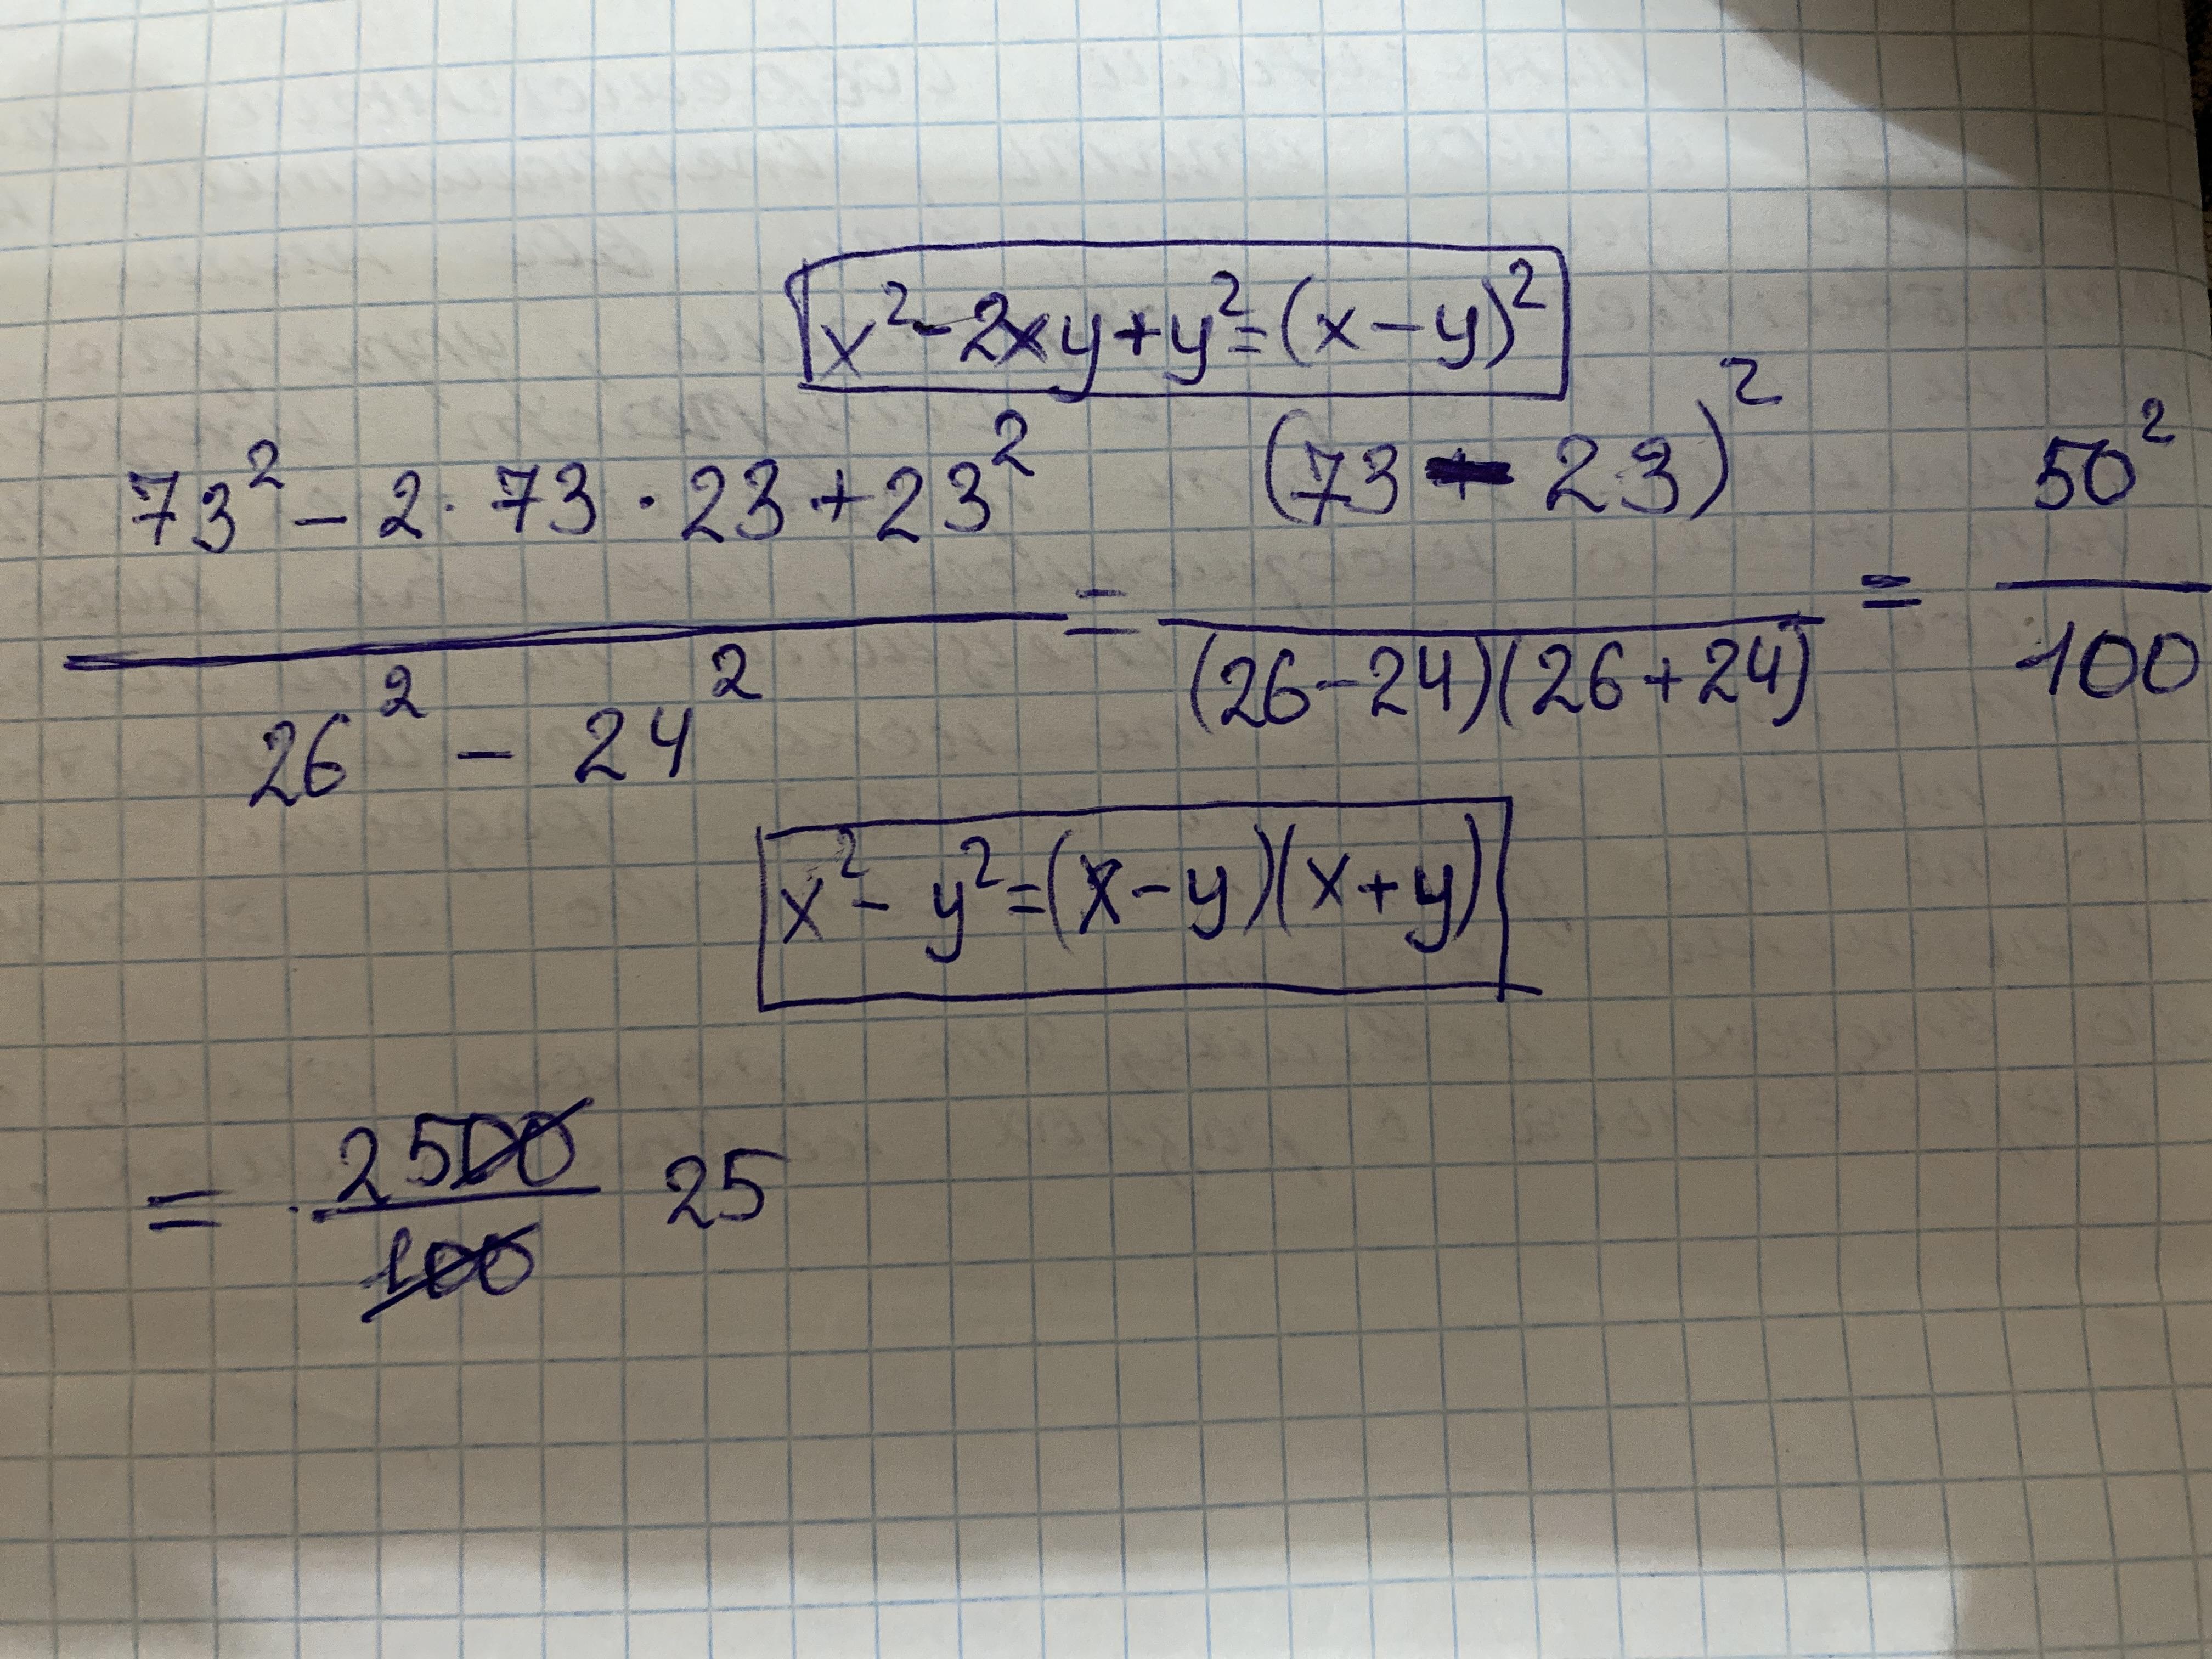 x²-2xy+y²=(x-y)²
73² - 2 · 73 · 23 + 23² / 26² - 24² = (73 - 23)² / (26-24)(26+24) = 50² / 100
x² - y² = (x-y)(x+y)
= 2500 / 100 25